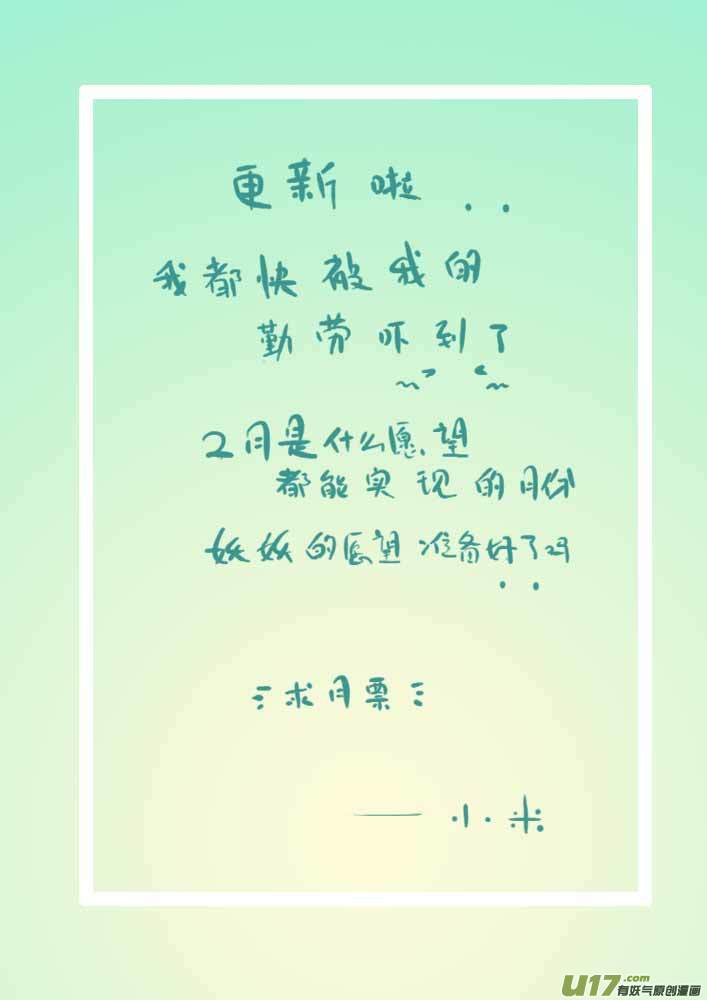 更新啦..
我都快被我的
勤劳吓到了
2月是什么愿望
都能实现的月份
妖妖的愿望准备好了吗
..
求月票
——小米
U17.com
有妖气原创漫画